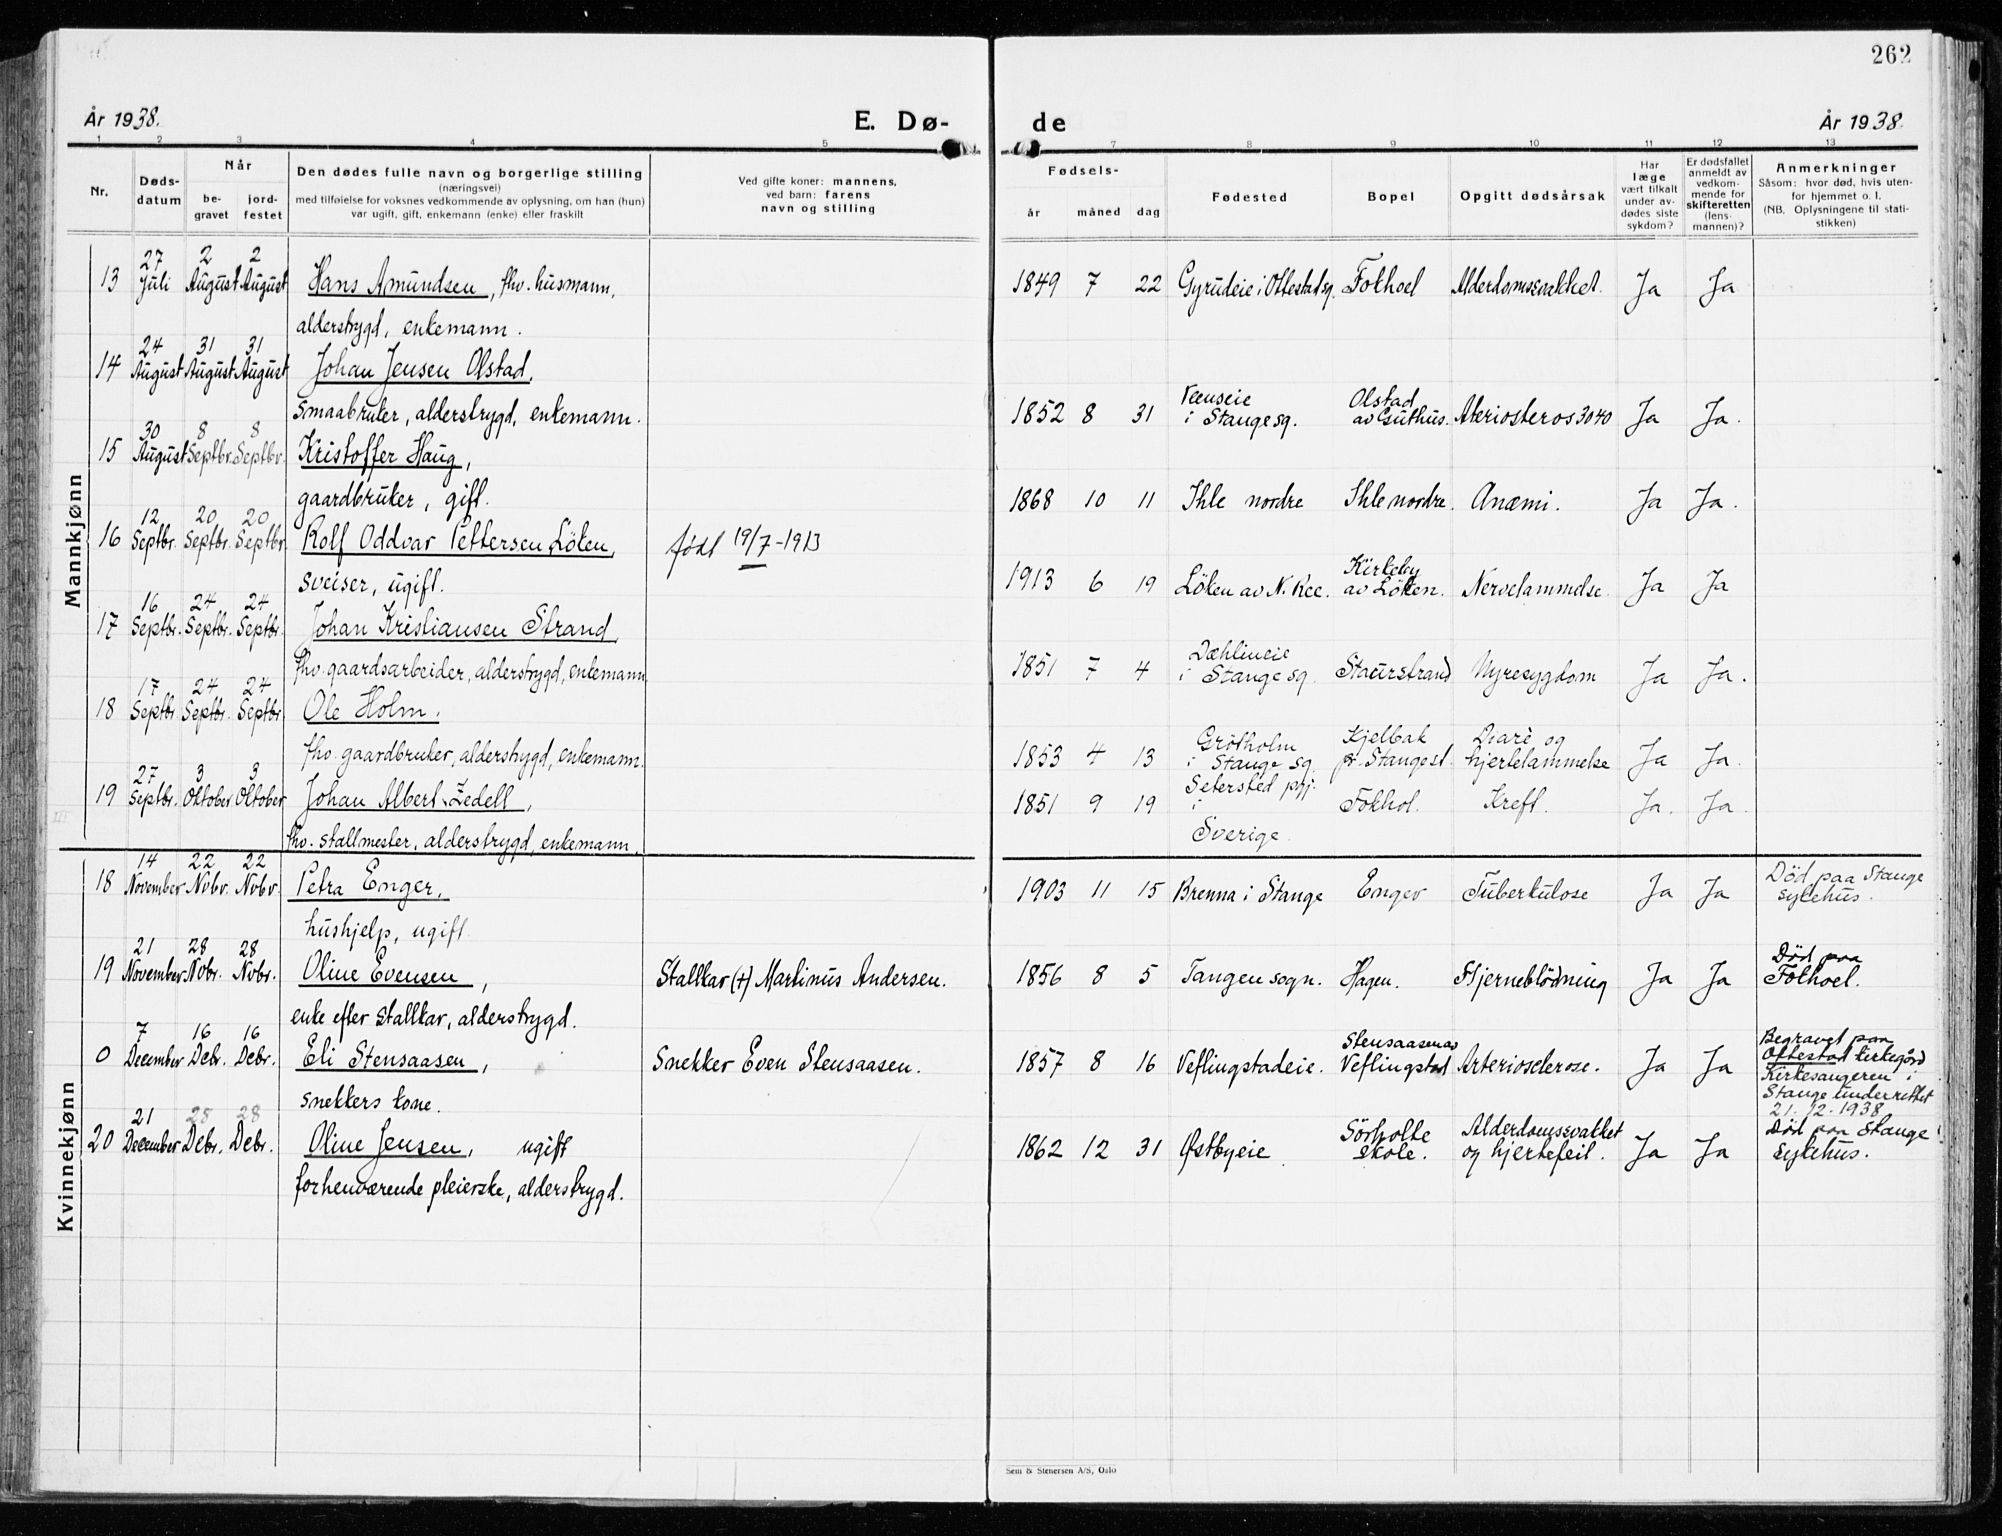 262
År 1938.
E. Dø-
de
År 1938
1 2 3 4 5 7 8 9 10 11 12 13
Nr.
Døds-
datum
Når
be-
gravet
jord-
festet
Den dødes fulle navn og borgerlige stilling
(næringsvei)
med tilføielse for voksnes vedkommende av oplysning, om han (hun)
var ugift, gift, enkemann (enke) eller fraskilt
Ved gifte koner: mannens,
ved barn: farens
navn og stilling
Fødsels-
år måned dag
Fødested
Bopel
Opgitt dødsårsak
Har
læge
vært tilkalt
under av-
dødes siste
sykdom?
Er dødsfallet
anmeldt av
vedkom-
mende for
skifteretten
(lens-
mannen)?
Anmerkninger
Såsom: hvor død, hvis uten-
for hjemmet o. l.
(NB. Oplysningene til stati-
stikken)
Mannkjønn
27 2 2
13 Juli August August Hans Amundsen, fhv. husmann, 1849 7 22 Gyrudeie i Ottestad sg. Fokhoel Alderdomssvakhet. Ja Ja
alderstrygd, enkemann.
24 31 31
14 August August August Johan Jensen Olstad,
smaabruker, alderstrygd, enkemann.
1852 8 31 i Stange sg. Olstad av Guthus. Ateriosteros 3040 Ja Ja.
30 8 8
15 August Septbr. Septbr. Kristoffer Haug,
gaardbruker, gift.
1868 10 11 Ihle nordre Ihle nordre. Anæmi. Ja Ja.
12 20 20
16 Septbr. Septbr. Septbr. Rolf Oddvar Pettersen Löken, født 19/7-1913
sveiser, ugift.
1913 6 19 Löken av N. Ree. Kirkeby av Löken. Nervelammelse. Ja Ja
16 24 24
17 Septbr. Septbr. Septbr. Johan Kristiansen Strand,
fhv. gaardsarbeider, alderstrygd, enkemann
1851 7 4 Dæhlineie i Stange sg. Staurstrand Nyresygdom Ja Ja.
17 24 24
18 Septbr. Septbr. Septbr. Ole Holm.
fhv. gaardbruker, alderstrygd, enkemann.
1853 4 13 Grötholm i Stange sg. Kjelbak pr. Stangest. Diarè og hjertelammelse Ja Ja.
27 3 3
19 Septbr. Oktober Oktober Johan Albert Zedell,
fhv. stallmester, alderstrygd, enkemann.
1851 9 19 Setersted pgj. i Sverige. Fokhol. Kreft. Ja. Ja.
Kvinnekjønn
14 22 22
18 November Nvbr. Nvbr. Petra Enger, 1903 11 15 Brenna i Stange Enger Tuberkulose Ja Ja Död paa Stange sykehus.
hushjelp, ugift.
21 28 28
19 November Nvbr. Nvbr. Oline Evensen, Stallkar (+) Martinus Andersen. 1856 8 5 Tangen sogn. Hagen. Hjerneblödning Ja Ja Död paa Fokhoel.
enke efter stallkar, alderstrygd.
7 16 16
0 December Debr. Debr. Eli Stensaasen, Snekker Even Stensaasen. 1857 8 16 Veflingstadeie. Stensaasen av Veflingstad Arteriosclerose. Ja Ja Begravet paa
Ottestad kirkegård
Kirkesangeren i
Stange underrettet
21-12-1938
snekkers kone.
21 28 28
20 December Debr. Debr. Oline Jensen, ugift 1862 12 31 Østbyeie Sörholte skole. Alderdomssvakhet og hjertefeil. Ja Ja Död paa Stange sykehus.
forhenværende pleierske, alderstrygd.
Sem & Stenersen A/S, Oslo